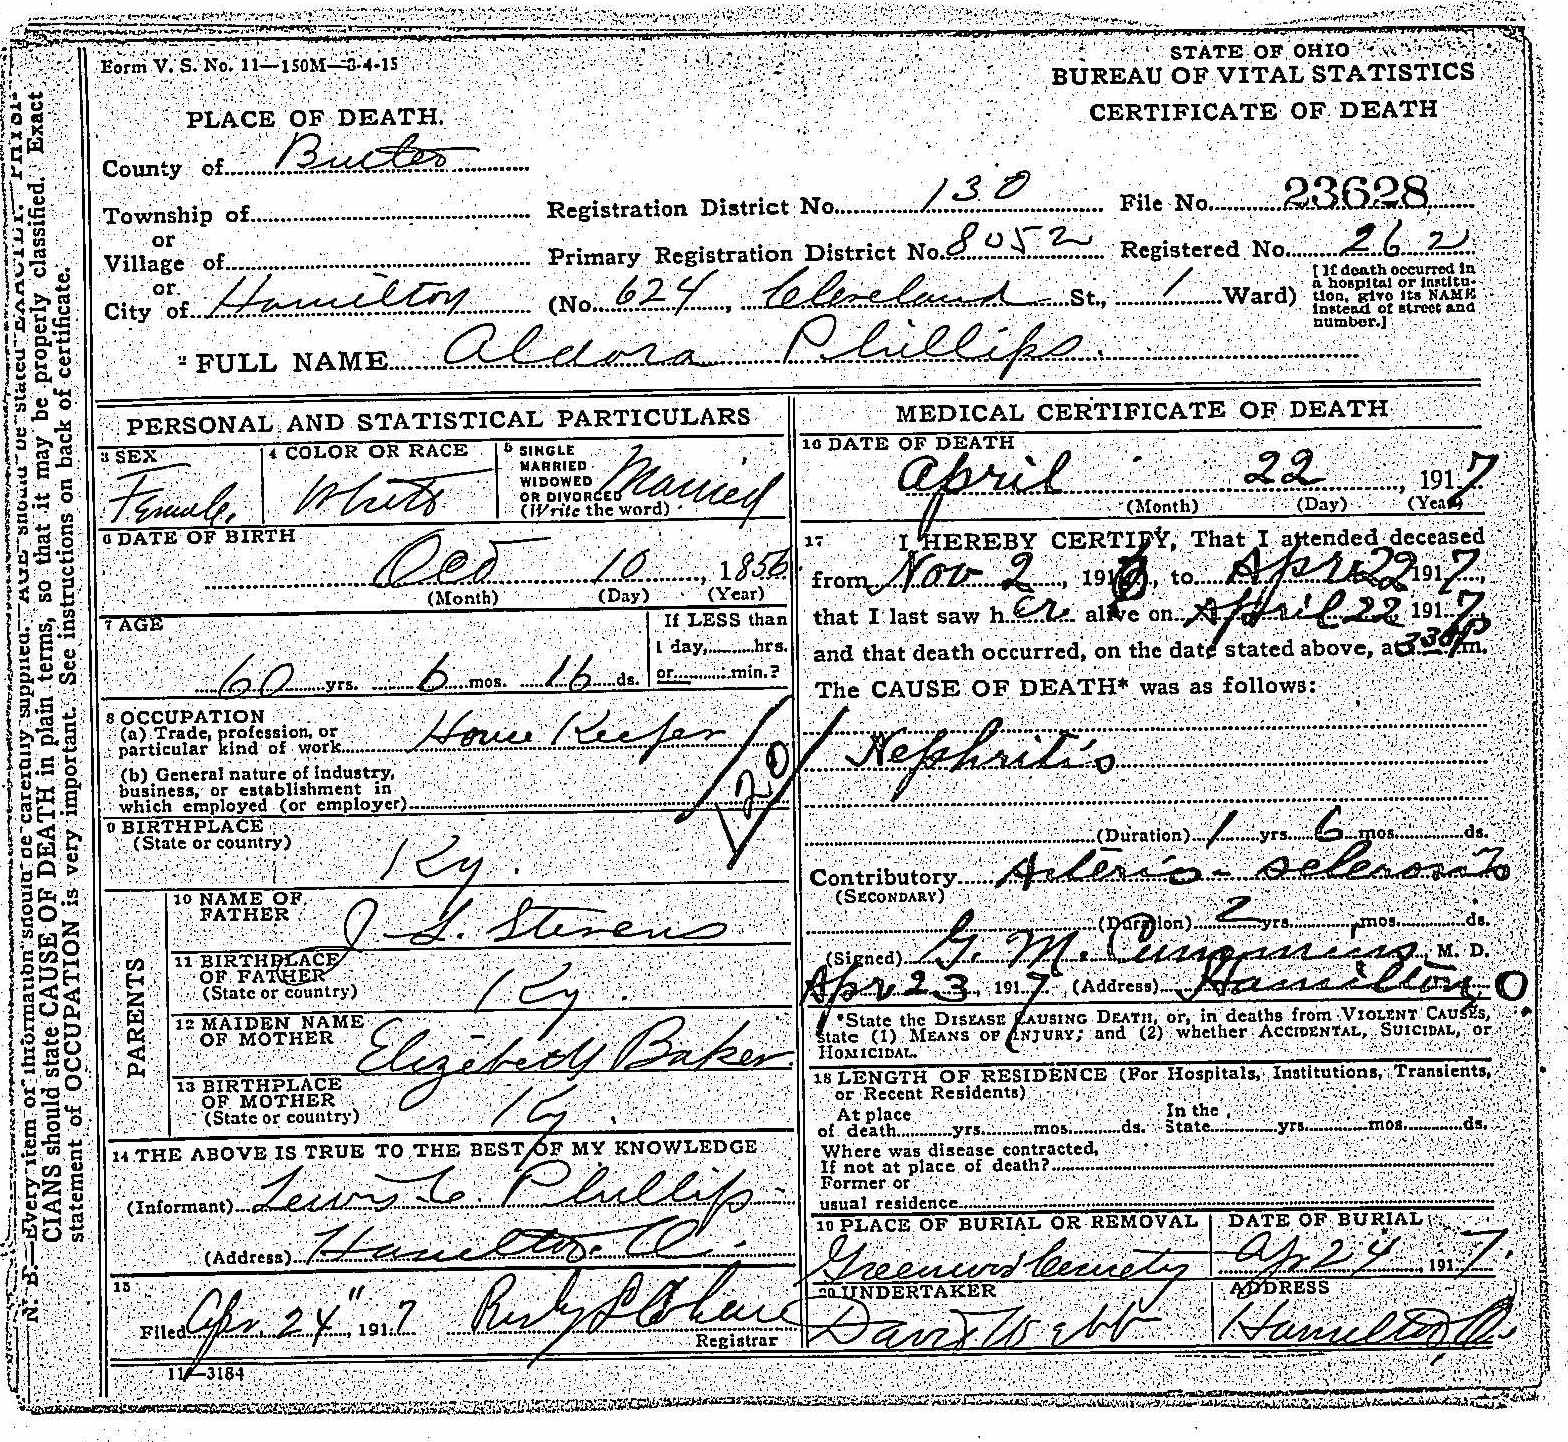 Form V. S. No. 11—150M—3-4-15
STATE OF OHIO
BUREAU OF VITAL STATISTICS
CERTIFICATE OF DEATH
PLACE OF DEATH.
County of Butler
Township of
or
Village of
or
City of Hamilton
Registration District No. 130 File No. 23628
Primary Registration District No. 8052 Registered No. 262
(No. 624, Cleveland St., 1 Ward)
[If death occurred in
a hospital or institu-
tion, give its NAME
instead of street and
number.]
2 FULL NAME Aldora Phillips.
PERSONAL AND STATISTICAL PARTICULARS
3 SEX
Female
4 COLOR OR RACE
White
5 SINGLE
MARRIED
WIDOWED
OR DIVORCED
(Write the word)
Married
6 DATE OF BIRTH
Oct 10, 1856
(Month) (Day) (Year)
7 AGE
60 yrs. 6 mos. 16 ds.
If LESS than
1 day, hrs.
or min.?
8 OCCUPATION
(a) Trade, profession, or
particular kind of work House Keeper
(b) General nature of industry,
business, or establishment in
which employed (or employer)
120
9 BIRTHPLACE
(State or country)
Ky.
PARENTS
10 NAME OF
FATHER
J. L. Stevens
11 BIRTHPLACE
OF FATHER
(State or country)
Ky.
12 MAIDEN NAME
OF MOTHER
Elizabeth Baker.
13 BIRTHPLACE
OF MOTHER
(State or country)
Ky.
14 THE ABOVE IS TRUE TO THE BEST OF MY KNOWLEDGE
(Informant) Lewis C. Phillips
(Address) Hamilton. O.
15
Filed Apr. 24", 1917
Registrar
11—3184
MEDICAL CERTIFICATE OF DEATH
16 DATE OF DEATH
April 22, 1917
(Month) (Day) (Year)
17 I HEREBY CERTIFY, That I attended deceased
from Nov 2, 1916, to Apr 22 1917,
that I last saw her alive on April 22, 1917,
and that death occurred, on the date stated above, at 330 P m.
The CAUSE OF DEATH* was as follows:
Nephritis
(Duration) 1 yrs. 6 mos. ds.
Contributory Arterio-sclerosis
(SECONDARY)
(Duration) 2 yrs. mos. ds.
(Signed) G. M. Cummins, M. D.
Apr 23, 1917 (Address) Hamilton O.
*State the DISEASE CAUSING DEATH, or, in deaths from VIOLENT CAUSES,
state (1) MEANS OF INJURY; and (2) whether ACCIDENTAL, SUICIDAL, or
HOMICIDAL.
18 LENGTH OF RESIDENCE (For Hospitals, Institutions, Transients,
or Recent Residents)
At place
of death yrs. mos. ds.
In the
State yrs. mos. ds.
Where was disease contracted,
If not at place of death?
Former or
usual residence
19 PLACE OF BURIAL OR REMOVAL
Greenwood Cemetery
DATE OF BURIAL
Apr 24, 1917.
20 UNDERTAKER
David Webb
ADDRESS
Hamilton, O.
N. B.—Every item of information should be carefully supplied. AGE should be stated EXACTLY. PHYSI-
CIANS should state CAUSE OF DEATH in plain terms, so that it may be properly classified. Exact
statement of OCCUPATION is very important. See instructions on back of certificate.